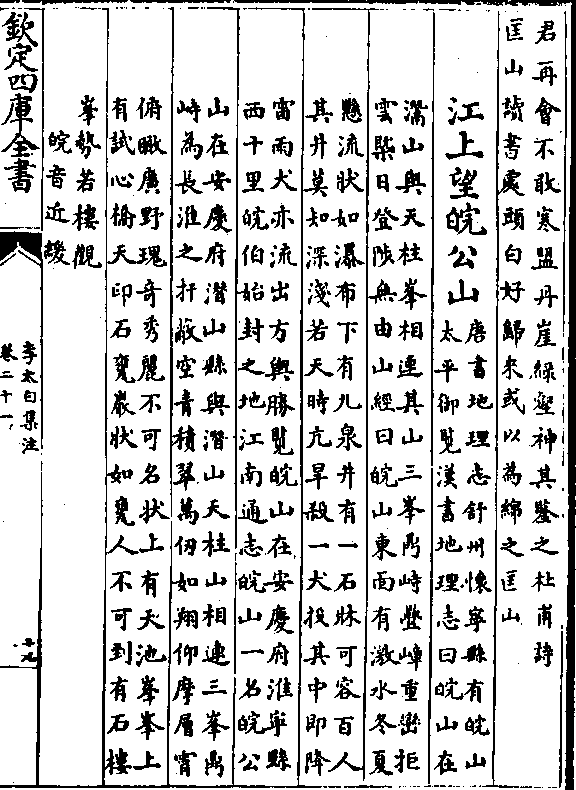 君再會不敢寒盟丹崖綠壑神其鑒之杜甫詩
匡山讀書處頭白好歸來或以為綿之匡山
江上望皖公山
唐書地理志舒州懷寧縣有皖山
太平御覽漢書地理志曰皖山在
灊山與天柱峯相連其山三峯鼎峙疊嶂重巒拒
雲槩日登陟無由山經曰皖山東面有激水冬夏
懸流狀如瀑布下有九泉井有一石牀可容百人
其井莫知深淺若天時亢旱殺一犬投其中即降
雷雨犬亦流出方輿勝覽皖山在安慶府淮寧縣
西十里皖伯始封之地江南通志皖山一名皖公
山在安慶府潛山縣與潛山天柱山相連三峯鼎
峙為長淮之扞蔽空青積翠萬仞如翔仰摩層霄
俯瞰廣野瑰奇秀麗不可名狀上有天池峯峯上
有試心橋天印石甕巖狀如甕人不可到有石樓
峯勢若樓觀
皖音近緩
欽定四庫全書
李太白集注
卷二十一
廿九